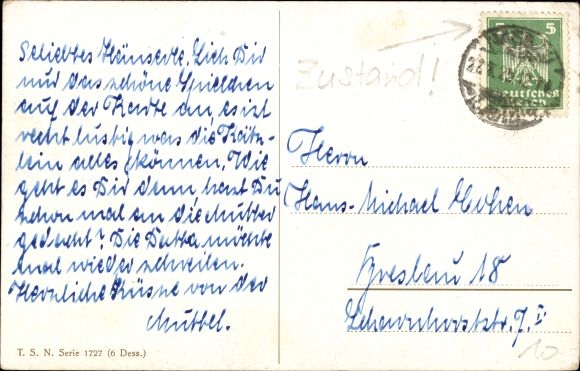 Geliebtes Hänserle. Sieh Dir
nur das schöne Spielchen
auf der Karte an, es ist
recht lustig was die Kätz-
lein alles können. Wie
geht es Dir denn, hast Du
schon mal an die Mutter
gedacht? Die Dutta möchte
mal wieder schreiben.
Herzliche Küsse von der
Muttel.
T. S. N. Serie 1727 (6 Dess.)
Zustand!
5 5
Deutsches Reich
Herrn
Hans-Michael Cohen
Breslau 18
Scharnhorststr. 7. I
10